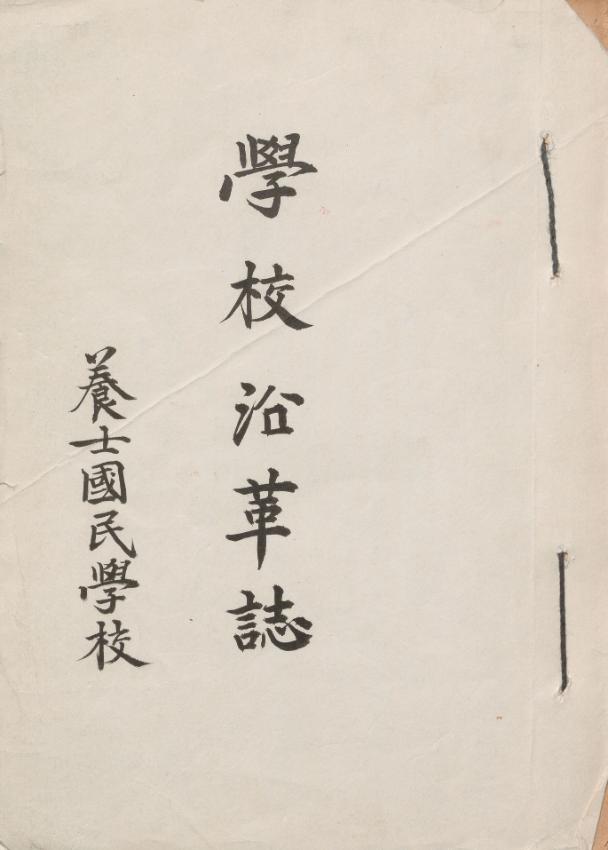 學校沿革誌
養士國民學校